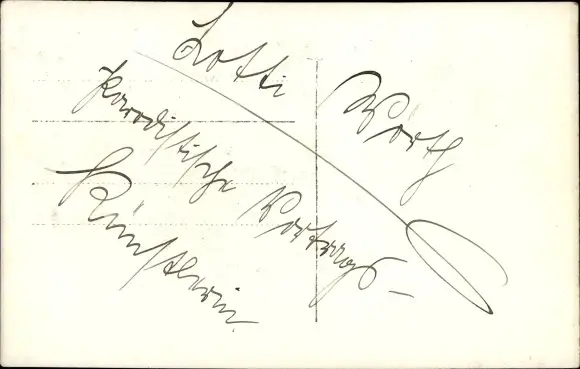 Lotti Wörth
parodistische Vortrags-
Künstlerin.